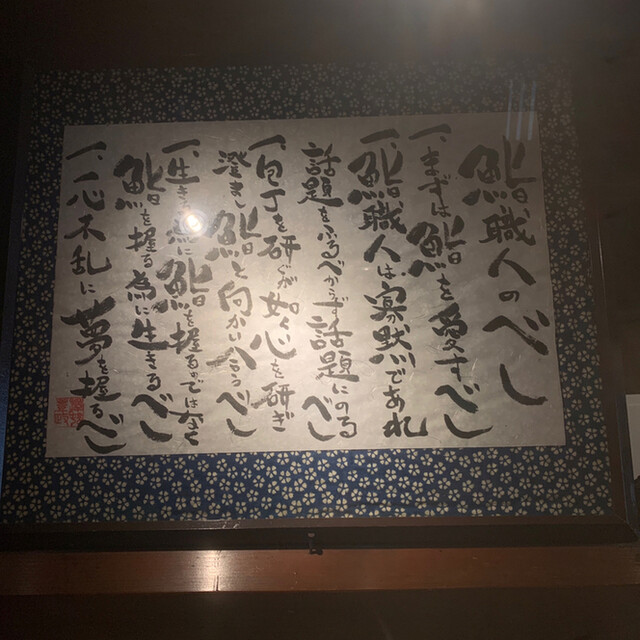 鮨職人のべし
一、まずは鮨を愛すべし
一、鮨職人は寡黙であれ
話題をふるべからず話題にのるべし
一、包丁を研ぐが如く心を研ぎ
澄まし鮨と向かい合うべし
一、生きる為に鮨を握るでは無く
鮨を握る為に生きるべし
一、一心不乱に夢を握るべし